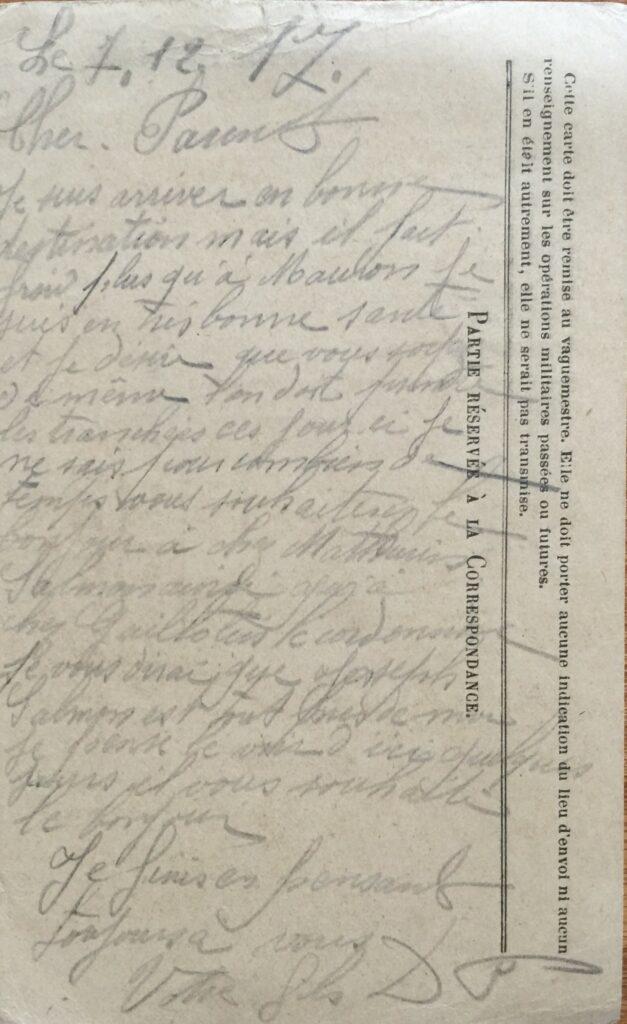 Le 7. 12. 17.
Cher. Parent
Je suis arriver en bonne
destination mais il fait
froid plus qu'à Mauron Je
suis en très bonne santé
et je désire que vous
de même l'on doit
les tranchées ces jours ci Je
ne sais pour combien de
temps vous souhaiterez le
bonjour à chez
Salmon
chez Guillotin le cordonnier
Je vous dirai que Joseph
Salmon est tout
Je pense le voir d'ici quelques
jours il vous souhaite
le bonjour
Je finis en pensant
toujours à vous
Votre fils D P
Cette carte doit être remise au vaguemestre. Elle ne doit porter aucune indication du lieu d'envoi ni aucun
renseignement sur les opérations militaires passées ou futures.
S'il en était autrement, elle ne serait pas transmise.
PARTIE RÉSERVÉE À LA CORRESPONDANCE.